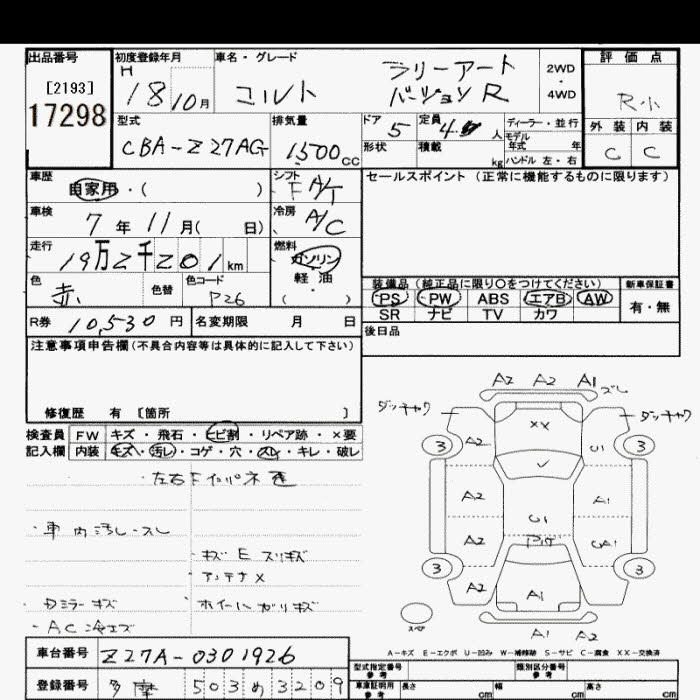 出品番号
[2193]
17298
初度登録年月
H 18 10月
車名・グレード
コルト
ラリーアート
バージョンR
2WD
・
4WD
評価点
R小
外装 内装
C C
型式
CBA-Z27AG
排気量
1500cc
ドア 5
形状
定員 4 人
積載 kg
ディーラー・並行
モデル
年式 年
ハンドル 左・右
車歴
自家用・( )
シフト
F A/T
車検
7年11月( 日)
冷房
A/C
走行
19万2千201km
燃料
ガソリン
軽・油
( )
色
赤
色替
色コード
P26
R券 10,530円
名変期限 月 日
セールスポイント(正常に機能するものに限ります)
装備品(純正品に限り○をつけてください)
PS PW ABS エアB AW
SR ナビ TV カワ
新車保証書
有・無
後日品
注意事項申告欄(不具合内容等は具体的に記入して下さい)
修復歴 有 [箇所 ]
検査員
記入欄
FW キズ・飛石・ヒビ割・リペア跡・×要
内装 キズ・汚レ・コゲ・穴・スレ・キレ・破レ
・車内汚レ・スレ
・キズEスリキズ
・アンテナX
・Dミラーキズ
・ホイールガリキズ
・AC冷エズ
A2 A2 A1 ズレ
ダッチャク
ダッチャク
XX
3 A2 U1 3
A2 A1
U1
A2 UA1
3 3
A2 A1
A1 A2
スペア
A-キズ E-エクボ U-凹み W-補修跡 S-サビ C-腐食 XX-交換済
車台番号 Z27A-0301926
登録番号 多摩 503め3209
型式指定番号
参考
類別区分番号
参考
車庫証明用
参考
長さ cm 幅 cm 高さ cm